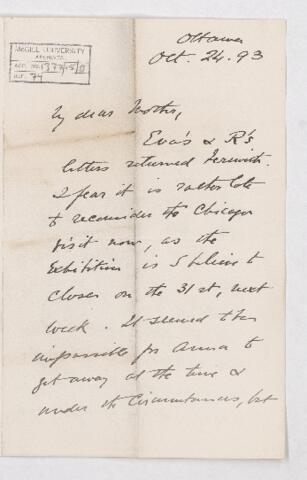 McGILL UNIVERSITY
ARCHIVES
ACC. NO.
REF. 74
Ottawa
Oct. 24. 93
My dear Mother,
Eva's & R's
letters returned herewith.
I fear it is rather late
to reconsider the Chicago
visit now, as the
Exhibition is I believe to
close on the 31st, next
week. It seemed then
impossible for Anna to
get away at the time &
under the circumstances, but